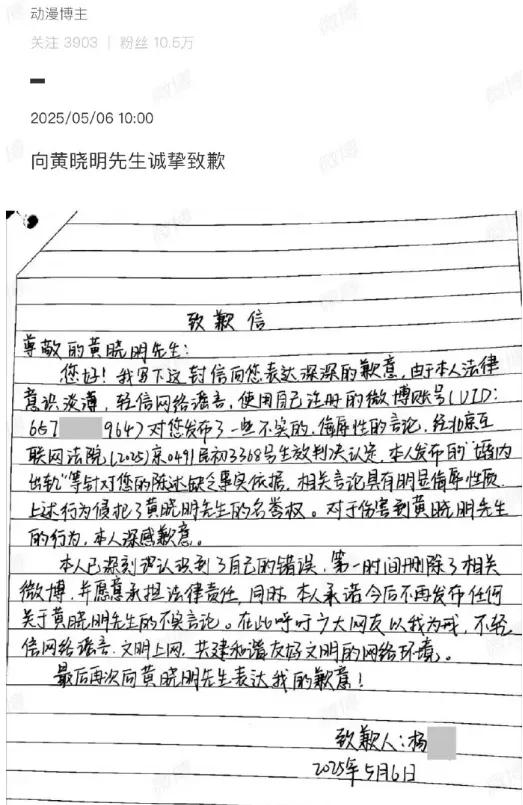 动漫博主
关注 3903 | 粉丝 10.5万
2025/05/06 10:00
向黄晓明先生诚挚致歉
致歉信
尊敬的黄晓明先生:
您好!我写下这封信向您表达深深的歉意,由于本人法律
意识淡薄,轻信网络谣言,使用自己注册的微博账号(UID:
657 964)对您发布了一些不实的、侮辱性的言论,经北京互
联网法院(2025)京0491民初3368号生效判决认定,本人发布的“婚内
出轨”等针对您的陈述缺乏事实依据,相关言论具有明显侮辱性质,
上述行为侵犯了黄晓明先生的名誉权。对于伤害到黄晓明先生
的行为,本人深感歉意。
本人已深刻认识到了自己的错误,第一时间删除了相关
微博,并愿意承担法律责任,同时,本人承诺今后不再发布任何
关于黄晓明先生的不实言论。在此呼吁广大网友以我为戒,不轻
信网络谣言,文明上网,共建和谐友好文明的网络环境。
最后再次向黄晓明先生表达我的歉意!
致歉人:杨
2025年5月6日